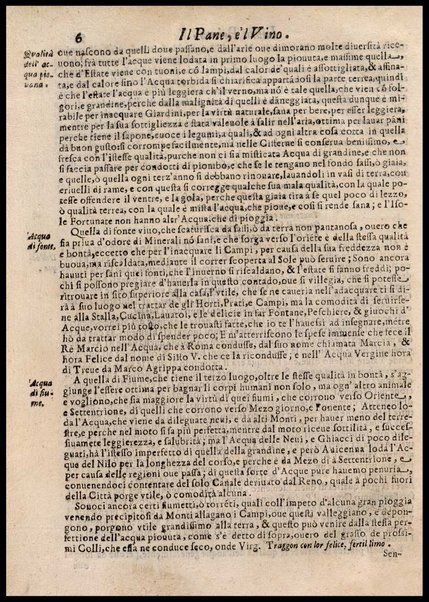 6 Il Pane, e'l Vino.
Qualità dell'acqua piouana.
oue nascono da quelli doue passano, dall'arie oue dimorano molte diuersità riceuono, frà tutte l'Acque viene lodata in primo luogo la piouuta, e massime quella,
che d'Estate viene con tuoni, e cõ lampi, dal calor de' quali è assottigliata, & affinata, e dal calor sino l'Acqua torbida si chiarifica apportandosi la parte terrea, quindi
è che l'estate l'acqua è più leggiera ch'il verno, ma nõ è tale quella, che vien cõ folgori, e grandine, perche dalla malignità di quelli è dãneggiata, questa dunque è mirabile per inacquare Giardini, per la virtù naturale, sana per bere, per esser leggiera,
mentre per la sua sottigliezza è stata valeuole à salir nell'aria, ottima per lauar pãni
perche tiene il sapone, cuoce i legumi, a quali, & ad ogni altra cosa cotta in quella
dà buon gusto, si corrompe facilmente, ma nelle Cisterne si conserua benissimo, e
fresca con l'istesse qualità, purche non si fia misticata Acqua di grandine, e che non
si faccia passare per condotti di piombo, e che se le tengano nel fondo sassi, ò giaia,
e quelle, ò quella ogni trè anno si debbano rinouare, lauandoli in vasi di terra, con
cruielli di rame, e con questa si corregge qualche sua mala qualità, con la quale potesse offendere il ventre, e la gola, perche questa giaia tira à se quel poco di lezzo,
ò qualità terrea, con la quale è mista l'acqua, che pioue, e così si rende sana; e l'Isole Fortunate non hanno altr'Acqua, che di pioggia.
Acqua di fonte.
Quella di fonte viuo, che scaturisca da sassi, ò da terra non pantanosa, ouero che
sia priua d'odore di Minerali nõ sani, e che sorga verso l'oriẽte è della stessa qualità
e bontà, eccetto che per l'inacquare li Campi, per causa della sua freddezza non è
buona, ma riscaldata, mediante il correr scoperta al Sole può seruire; Sono ancora
hauuti per sani quei fonti, che l'inuerno si riscaldano, & l'estate si fanno freddi; pochi si possono pregiare d'hauerla in questo contado, oue si villegia, che si potesse
ritrouare in sito superiore alla casa, il vtile, che se ne cauerìa nell'adacquare si dirà a suo luogo nel trattar de gli Horti, Prati, e Campi, ma la comodità di seruirsene alla Stalla, Cucina, Lauatoi, e le delicie in far Fontane, Peschiere, & giuochi d'
Acque, vorrei più tosto, che le trouasti fatte, che io te l'hauessi ad insegnare, mentre
hò da trattar modo di spender poco; E n'atterriscono le spese immense che fece il
Rè Marcio nell'Acqua, che à Roma condusse, dal suo nome chiamata Marcia, &
hora Felice dal nome di Sisto V. che ce la ricondusse; e nell'Acqua Vergine hora
di Treue da Marco Agrippa condotta.
Acqua di fiume.
A quella di Fiume, che tiene il terzo luogo, oltre le stesse qualità in bontà, s'aggiunge l'essere ottima per bagnar li corpi humani non solo, ma ogn'altro animale
e vogliono, che sia maggiore la virtù di quei fiumi, che corrono verso Oriente,
e Settentrione, di quelli che corrono verso Mezo giorno, e Ponente; Atteneo loda l'Acqua, che viene da dileguate neui, e da alti Monti, per hauer meno del terrestre, e perche nel moto si fa più perfetta, mentre dal moto riceue sottilità, e successiuamente leggierezza, e salubrità; ma l'Acqua delle Neui, e Ghiacci di poco dileguati, hà l'istesso imperfetto di quella della grandine, e però Auicenna loda l'Acque del Nilo per la longhezza del corso, e perche è da Mezo dì à Settentrione, e
per causa delle regioni oue passa; di quella sorte d'Acque pure hauemo penuria,
conuenendoci contentare del solo Canale deriuato dal Reno, quale à pochi fuori
della Città porge vtile, ò comodità alcuna.
Sonoci ancora certi fiumetti, ò torrẽti, quali coll'impeto d'alcuna gran pioggia
venendo precipitosi da Monti allagano i Campi, oue questi valleggiano, e depongono, porgono vtile grandissimo alla terra, & questo può venire dalla stessa perfettione dell'acqua piouuta, come s'è detto di sopra, ouero del grasso de' prossimi Colli, che essa ne conduce seco, onde Virg. Traggon con lor felice, fertil limo.
Sen-